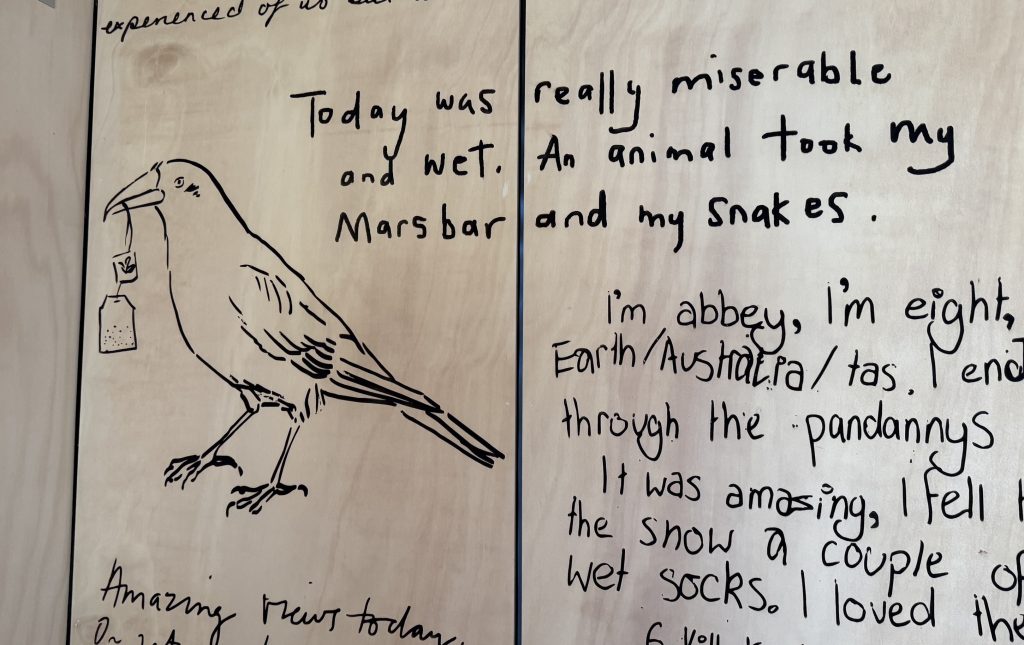 experienced of us
Today was really miserable
and wet. An animal took my
Mars bar and my snakes.
I'm abbey, I'm eight,
Earth/Australia/tas. I
through the pandannys
It was amazing, I fell
the snow a couple of
wet socks. I loved the
Amazing views today.